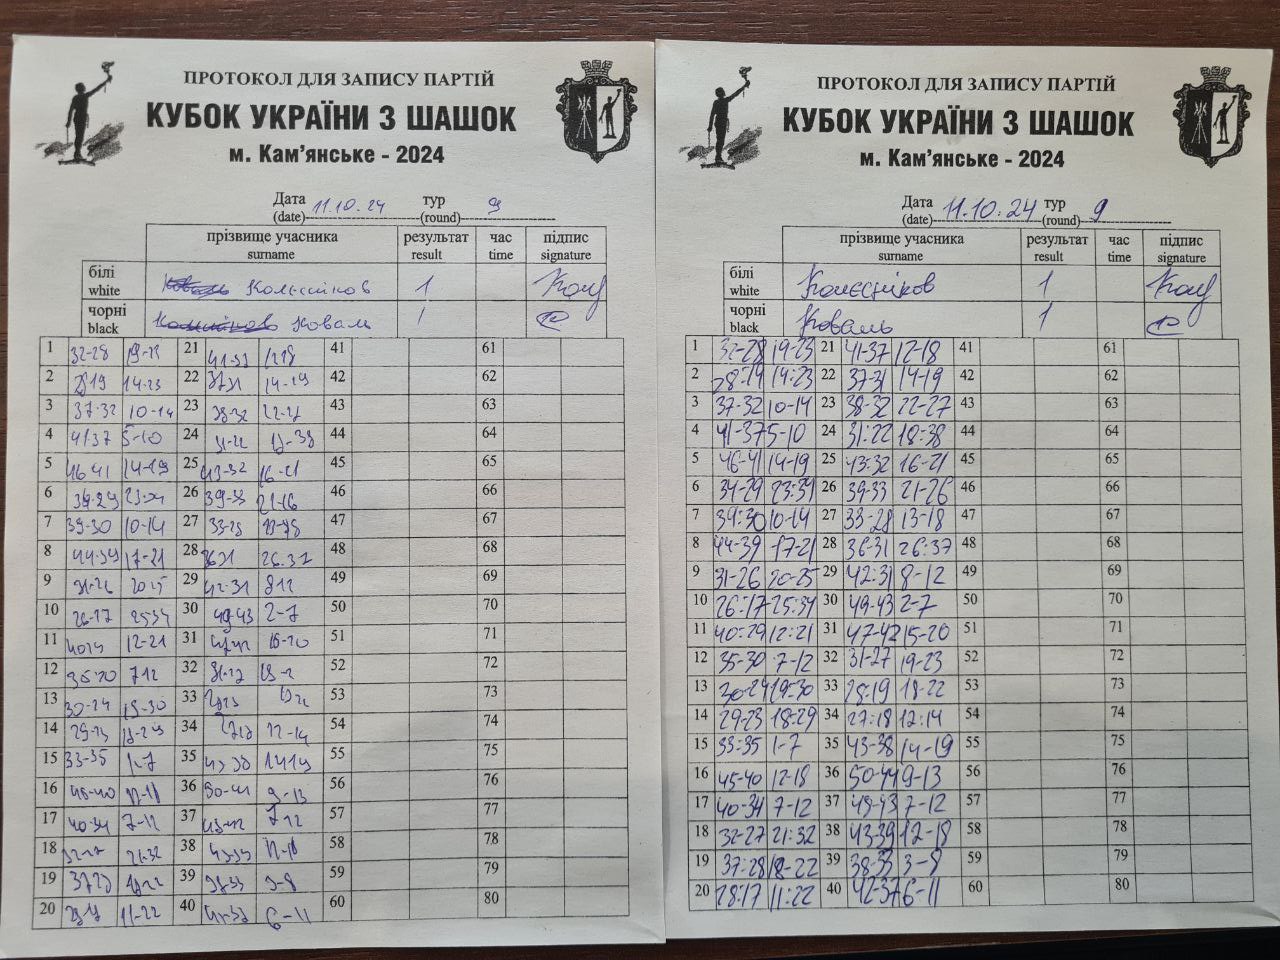 ПРОТОКОЛ ДЛЯ ЗАПИСУ ПАРТІЙ
КУБОК УКРАЇНИ З ШАШОК
м. Кам'янське - 2024
Дата (date) 11.10.24 тур (round) 9
прізвище учасника surname результат result час time підпис signature
білі white Колєсніков 1
чорні black Коваль 1
1 32-28 19-23 21 41-37 12-18 41 61
2 28-19 14-23 22 37-31 14-19 42 62
3 37-32 10-14 23 38-32 22-27 43 63
4 41-37 5-10 24 31-22 18-38 44 64
5 46-41 14-19 25 43-32 16-21 45 65
6 34-29 23-34 26 39-33 21-26 46 66
7 39-30 10-14 27 33-28 13-18 47 67
8 44-39 17-21 28 36-31 26-37 48 68
9 31-26 20-25 29 42-31 8-12 49 69
10 26-17 25-34 30 49-43 2-7 50 70
11 40-29 12-21 31 47-42 15-20 51 71
12 35-30 7-12 32 31-27 52 72
13 30-24 19-30 33 53 73
14 29-23 18-29 34 27-18 12-14 54 74
15 33-35 1-7 35 43-38 14-19 55 75
16 45-40 12-18 36 50-44 9-13 56 76
17 40-34 7-12 37 7-12 57 77
18 32-27 21-32 38 43-39 12-18 58 78
19 37-28 18-22 39 38-33 3-8 59 79
20 11-22 40 6-11 60 80
ПРОТОКОЛ ДЛЯ ЗАПИСУ ПАРТІЙ
КУБОК УКРАЇНИ З ШАШОК
м. Кам'янське - 2024
Дата (date) 11.10.24 тур (round) 9
прізвище учасника surname результат result час time підпис signature
білі white Колєсніков 1
чорні black Коваль 1
1 32-28 19-23 21 41-37 12-18 41 61
2 28-19 14:23 22 37-31 14-19 42 62
3 37-32 10-14 23 38-32 22-27 43 63
4 41-37 5-10 24 31:22 18:38 44 64
5 46-41 14-19 25 43:32 16-21 45 65
6 34-29 23:34 26 39-33 21-26 46 66
7 39:30 10-14 27 33-28 13-18 47 67
8 44-39 17-21 28 36-31 26:37 48 68
9 31-26 20-25 29 42:31 8-12 49 69
10 26:17 25:34 30 49-43 2-7 50 70
11 40:29 12:21 31 47-42 15-20 51 71
12 35-30 7-12 32 31-27 19-23 52 72
13 30-24 19:30 33 28:19 18-22 53 73
14 29-23 18-29 34 27:18 12:14 54 74
15 33:35 1-7 35 43-38 14-19 55 75
16 45-40 12-18 36 50-44 9-13 56 76
17 40-34 7-12 37 48-43 7-12 57 77
18 32-27 21:32 38 43-39 12-18 58 78
19 37:28 18-22 39 38-33 3-8 59 79
20 28:17 11:22 40 42-37 6-11 60 80